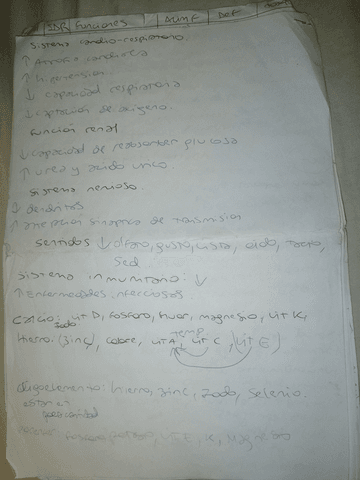 IDR Funciones Aume Def
Sistema cardio-respiratorio.
↑ cardiaca
↑ Hipertensión.
↓ capacidad respiratoria
↓ captación de oxigeno.
Función renal
↓ capacidad de reabsorber glucosa
↑ urea y acido urico
Sistema nervioso.
↓ dendritas
↑ sinaptica de trasmision
Sentidos ↓ olfato, gusto, vista, oido, tacto,
Sed
Sistema inmunitario: ↓
↑ Enfermedades infecciosas
Calcio: vit D, fosforo, fluor, magnesio, vit K,
Iodo.
temp
Hierro. (zinc), cobre, vit A, vit C, (vit E)
oligoelemento: hierro, zinc, Iodo, Selenio.
fosforo, , K, Magnesio